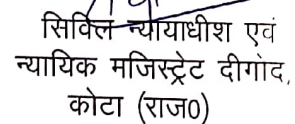 सिविल न्यायाधीश एवं
न्यायिक मजिस्ट्रेट दीगोद,
कोटा (राज0)